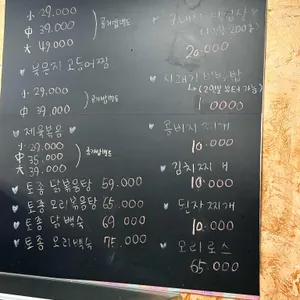 小 29.000
中 39.000
大 49.000
공기밥별도
묵은지 고등어찜
小 29.000
中 39.000
공기밥별도
제육볶음
小 29.000
中 35.000
大 39.000
공기밥별도
토종 닭볶음탕 59.000
토종 오리볶음탕 65.000
토종 닭백숙 69.000
토종 오리백숙 75.000
국내산
20.000
시래기 비빔밥
(2인분 부터 가능)
10000
콩비지 찌개
10.000
김치찌개
10.000
된장찌개
10.000
오리로스
65.000